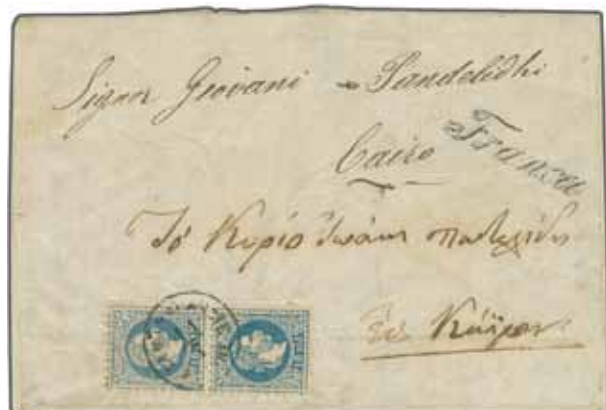 Signor Giovani Pandelidhi
Cairo
Franca
Τῷ Κυρίῳ Ἰωάννῃ
Εἰς Κάϊρον